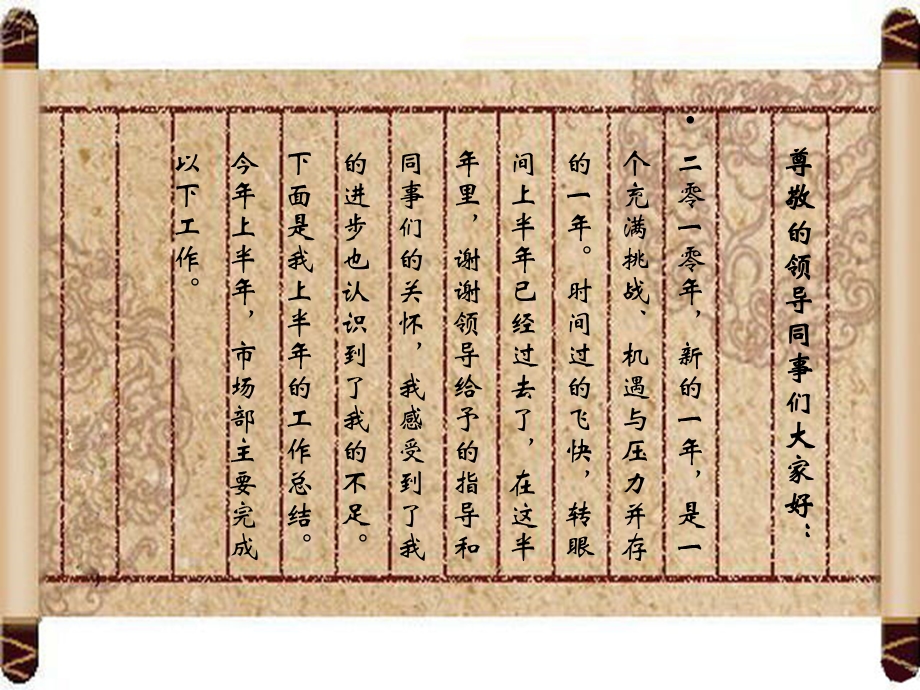 尊敬的领导同事们大家好：
• 二零一零年，新的一年，是一
个充满挑战、机遇与压力并存
的一年。时间过的飞快，转眼
间上半年已经过去了，在这半
年里，谢谢领导给予的指导和
同事们的关怀，我感受到了我
的进步也认识到了我的不足。
下面是我上半年的工作总结。
今年上半年，市场部主要完成
以下工作。